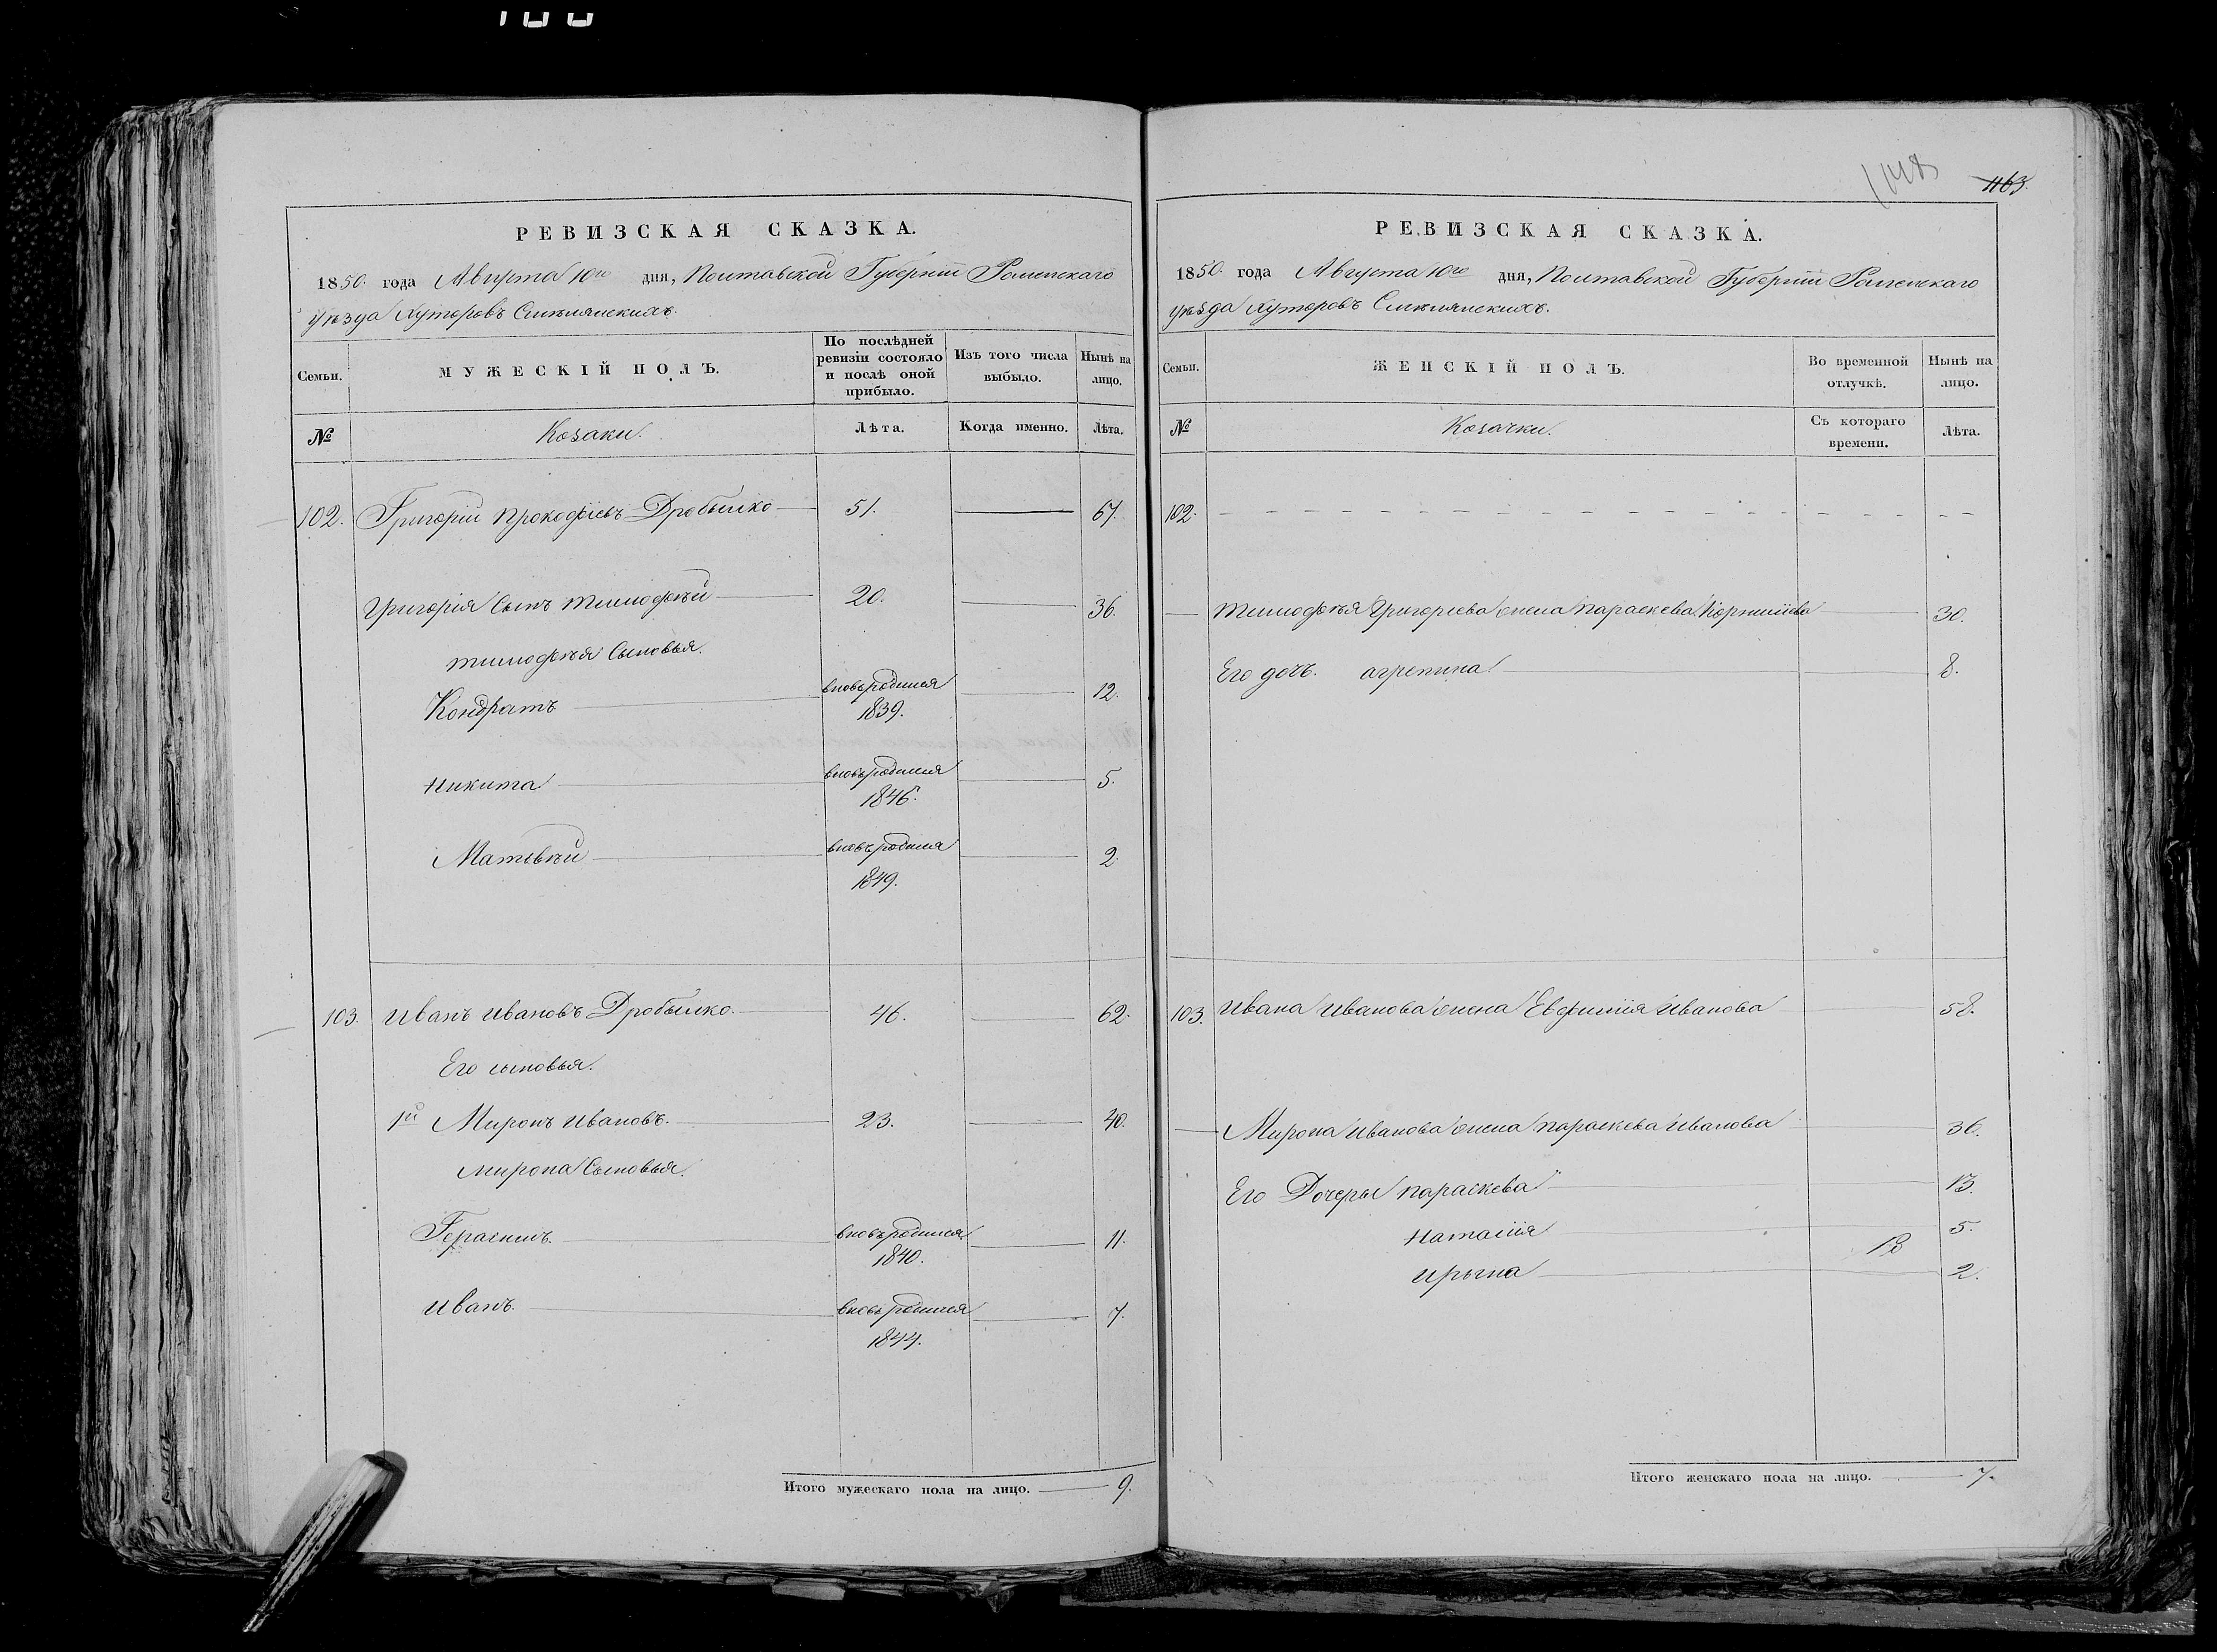 1163.
РЕВИЗСКАЯ СКАЗКА.
1850. года Августа 10го дня, Полтавской Губерніи Роменскаго
уѣзда Хуторовъ Смѣлянскихъ.
Семьи.
МУЖЕСКІЙ ПОЛЪ.
По послѣдней ревизіи состояло и послѣ оной прибыло.
Изъ того числа выбыло.
Нынѣ на лицо.
№
Козаки.
Лѣта.
Когда именно.
Лѣта.
102. Григорій Прокофіевъ Дробылко 51. 67.
Григорія Сынъ Тимофѣй 20. 36.
Тимофѣя Сыновья.
Кондратъ вновьродился 1839. 12.
Никита вновьродился 1846. 5.
Матвѣй вновьродился 1849. 2.
103. Иванъ Ивановъ Дробылко. 46. 62.
Его сыновья.
1й Миронъ Ивановъ. 23. 40.
Мирона Сыновья.
Герасимъ. вновьродился 1840. 11.
Иванъ. вновьродился 1844. 7.
Итого мужескаго пола на лицо. 9.
РЕВИЗСКАЯ СКАЗКА.
1850. года Августа 10го дня, Полтавской Губерніи Роменскаго
уѣзда Хуторовъ Смѣлянскихъ.
Семьи.
ЖЕНСКІЙ ПОЛЪ.
Во временной отлучкѣ.
Нынѣ на лицо.
№
Козачки.
Съ котораго времени.
Лѣта.
102.
Тимофѣя Григорьева жена Параскева 30.
Его дочь. Агрепина 8.
103. Ивана Иванова жена Евфимія Иванова 58.
Мирона Иванова жена Параскева Иванова 36.
Его Дочеры Параскева 13.
Наталія 5.
Ирына 2.
Итого женскаго пола на лицо. 7.